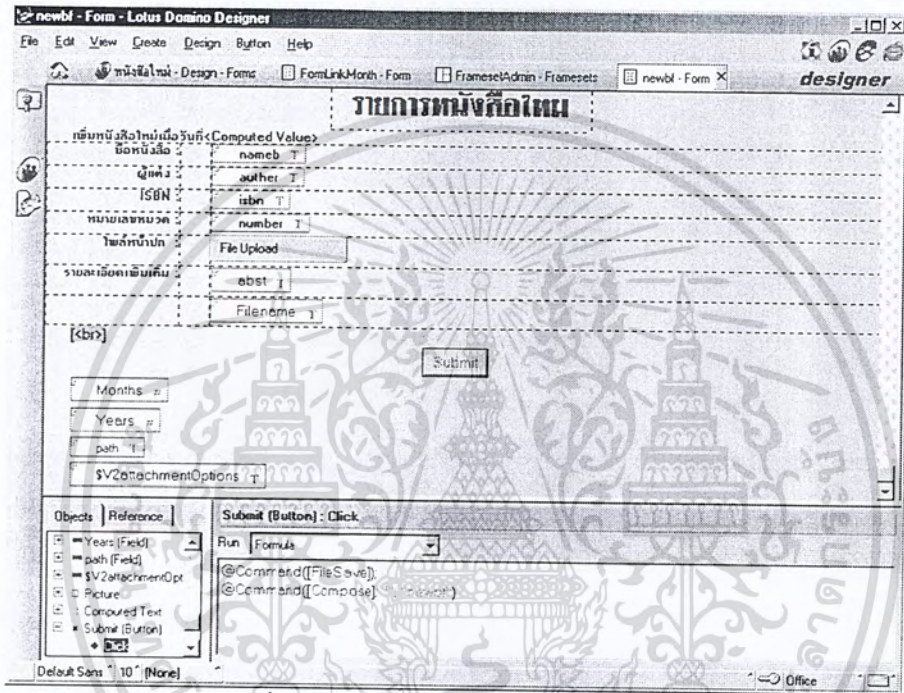 newbf - Form - Lotus Domino Designer
File Edit View Create Design Button Help
designer
หนังสือใหม่ - Design - Forms FormLinkMonth - Form FramesetAdmin - Framesets newbf - Form
รายการหนังสือใหม่
เพิ่มหนังสือใหม่เมื่อวันที่<Computed Value>
ชื่อหนังสือ : nameb T
ผู้แต่ง : auther T
ISBN : isbn T
หมายเลขหมวด : number T
ไฟล์หน้าปก : File Upload
รายละเอียดเพิ่มเติม : abst T
Filename T
[<br>]
Submit
Months #
Years #
path T
$V2attachmentOptions T
Objects Reference
Submit (Button) : Click
Years (Field)
path (Field)
$V2attachmentOpt
Picture
Computed Text
Submit (Button)
Click
Run Formula
@Command([FileSave]);
@Command([Compose];
Default Sans 10 [None]
Office